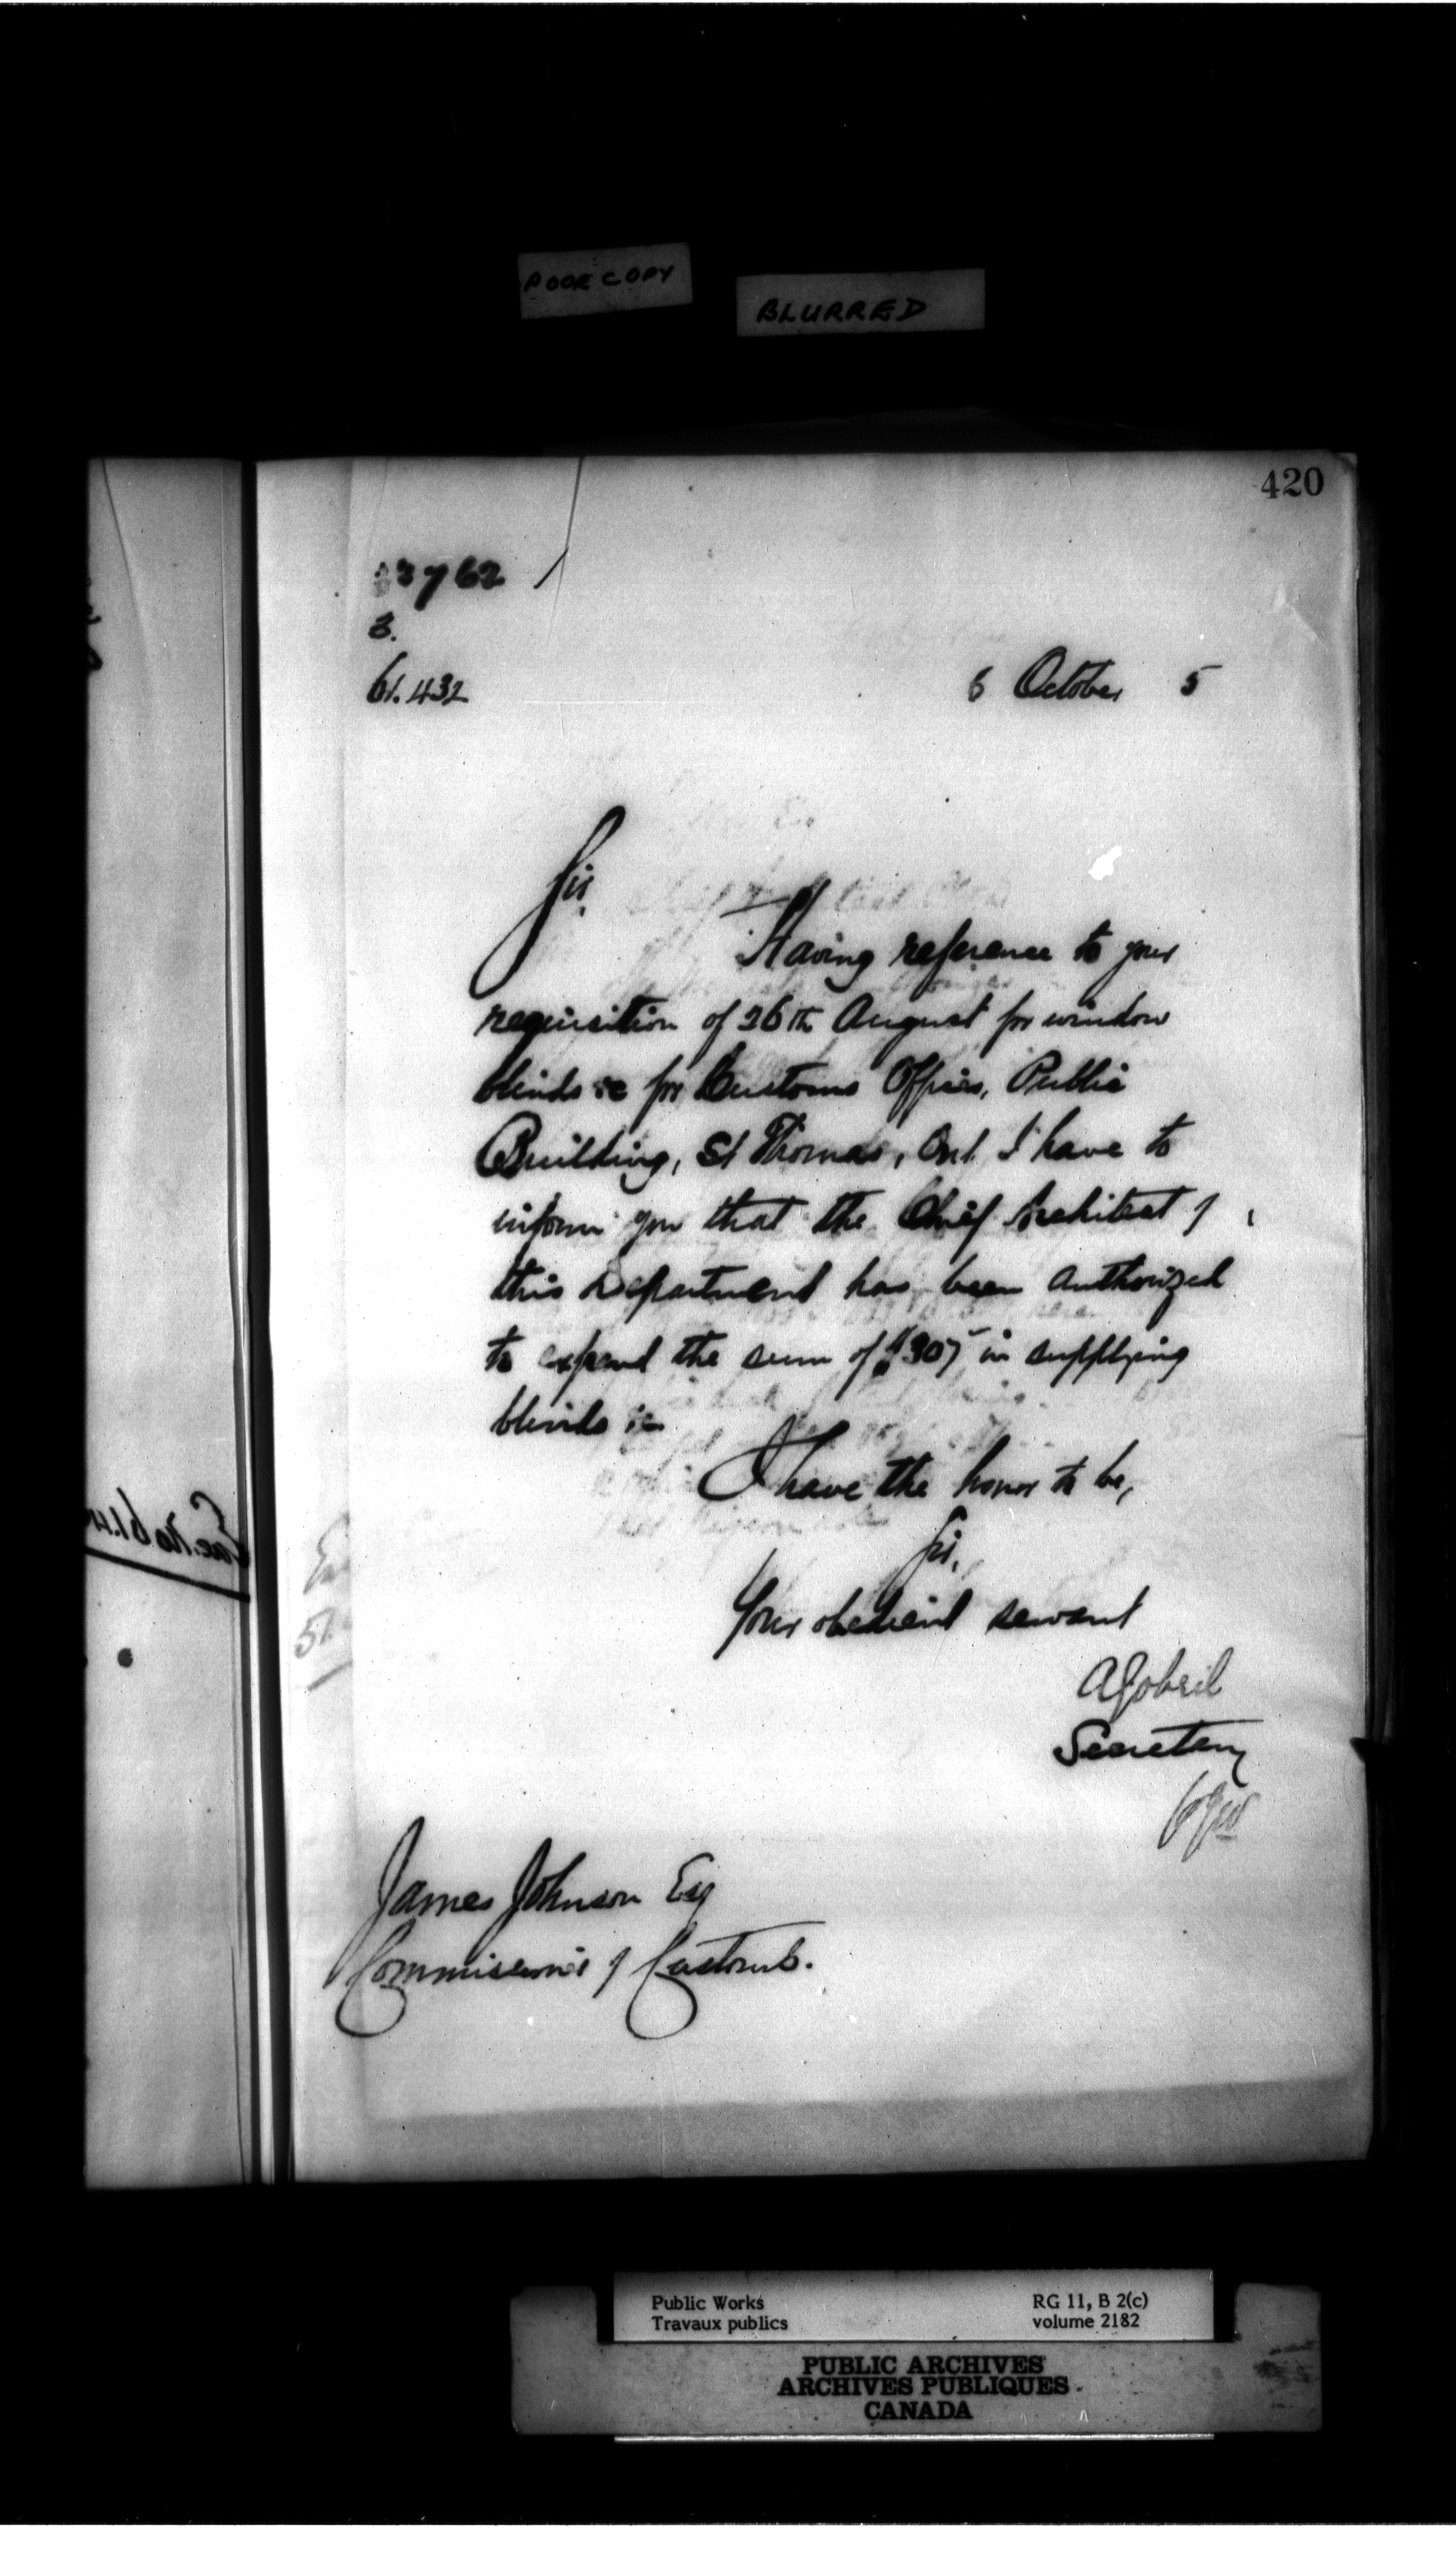 POOR COPY
BLURRED
420
3762
3.
61.432
6 October 5
Sir,
Having reference to your
requisition of 26th August for window
blinds &c for Customs Offices, Public
Building, St Thomas, Ont. I have to
inform you that the Chief Architect of
this Department has been authorized
to expend the sum of $30 in supplying
blinds &c
I have the honor to be,
Sir,
Your obedient servant
A Gobeil
Secretary
James Johnson Esq
Commissioner of Customs.
Public Works
Travaux publics
RG 11, B 2(c)
volume 2182
PUBLIC ARCHIVES
ARCHIVES PUBLIQUES
CANADA